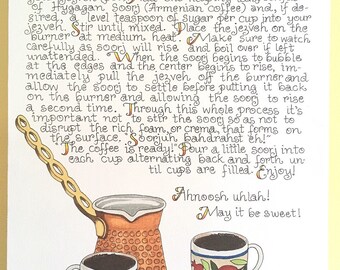 of Hygagan Soorj (Armenian coffee) and, if de-
sired, a level teaspoon of sugar per cup into your
jezveh. Stir until mixed. Place the jezveh on the
burner on medium heat. Make sure to watch
carefully as soorj will rise and boil over if left
unattended. When the soorj begins to bubble
at the edges and the center begins to rise, im-
mediately pull the jezveh off the burner and
allow the soorj to settle before putting it back
on the burner and allowing the soorj to rise
a second time. Through this whole process it's
important not to stir the soorj so as not to
disrupt the rich foam, or crema, that forms on
the surface. "Soorjuh bahdrahst eh!"
"The coffee is ready!" Pour a little soorj into
each cup alternating back and forth un-
til cups are filled. Enjoy!
Ahnoosh uhlah!
May it be sweet!